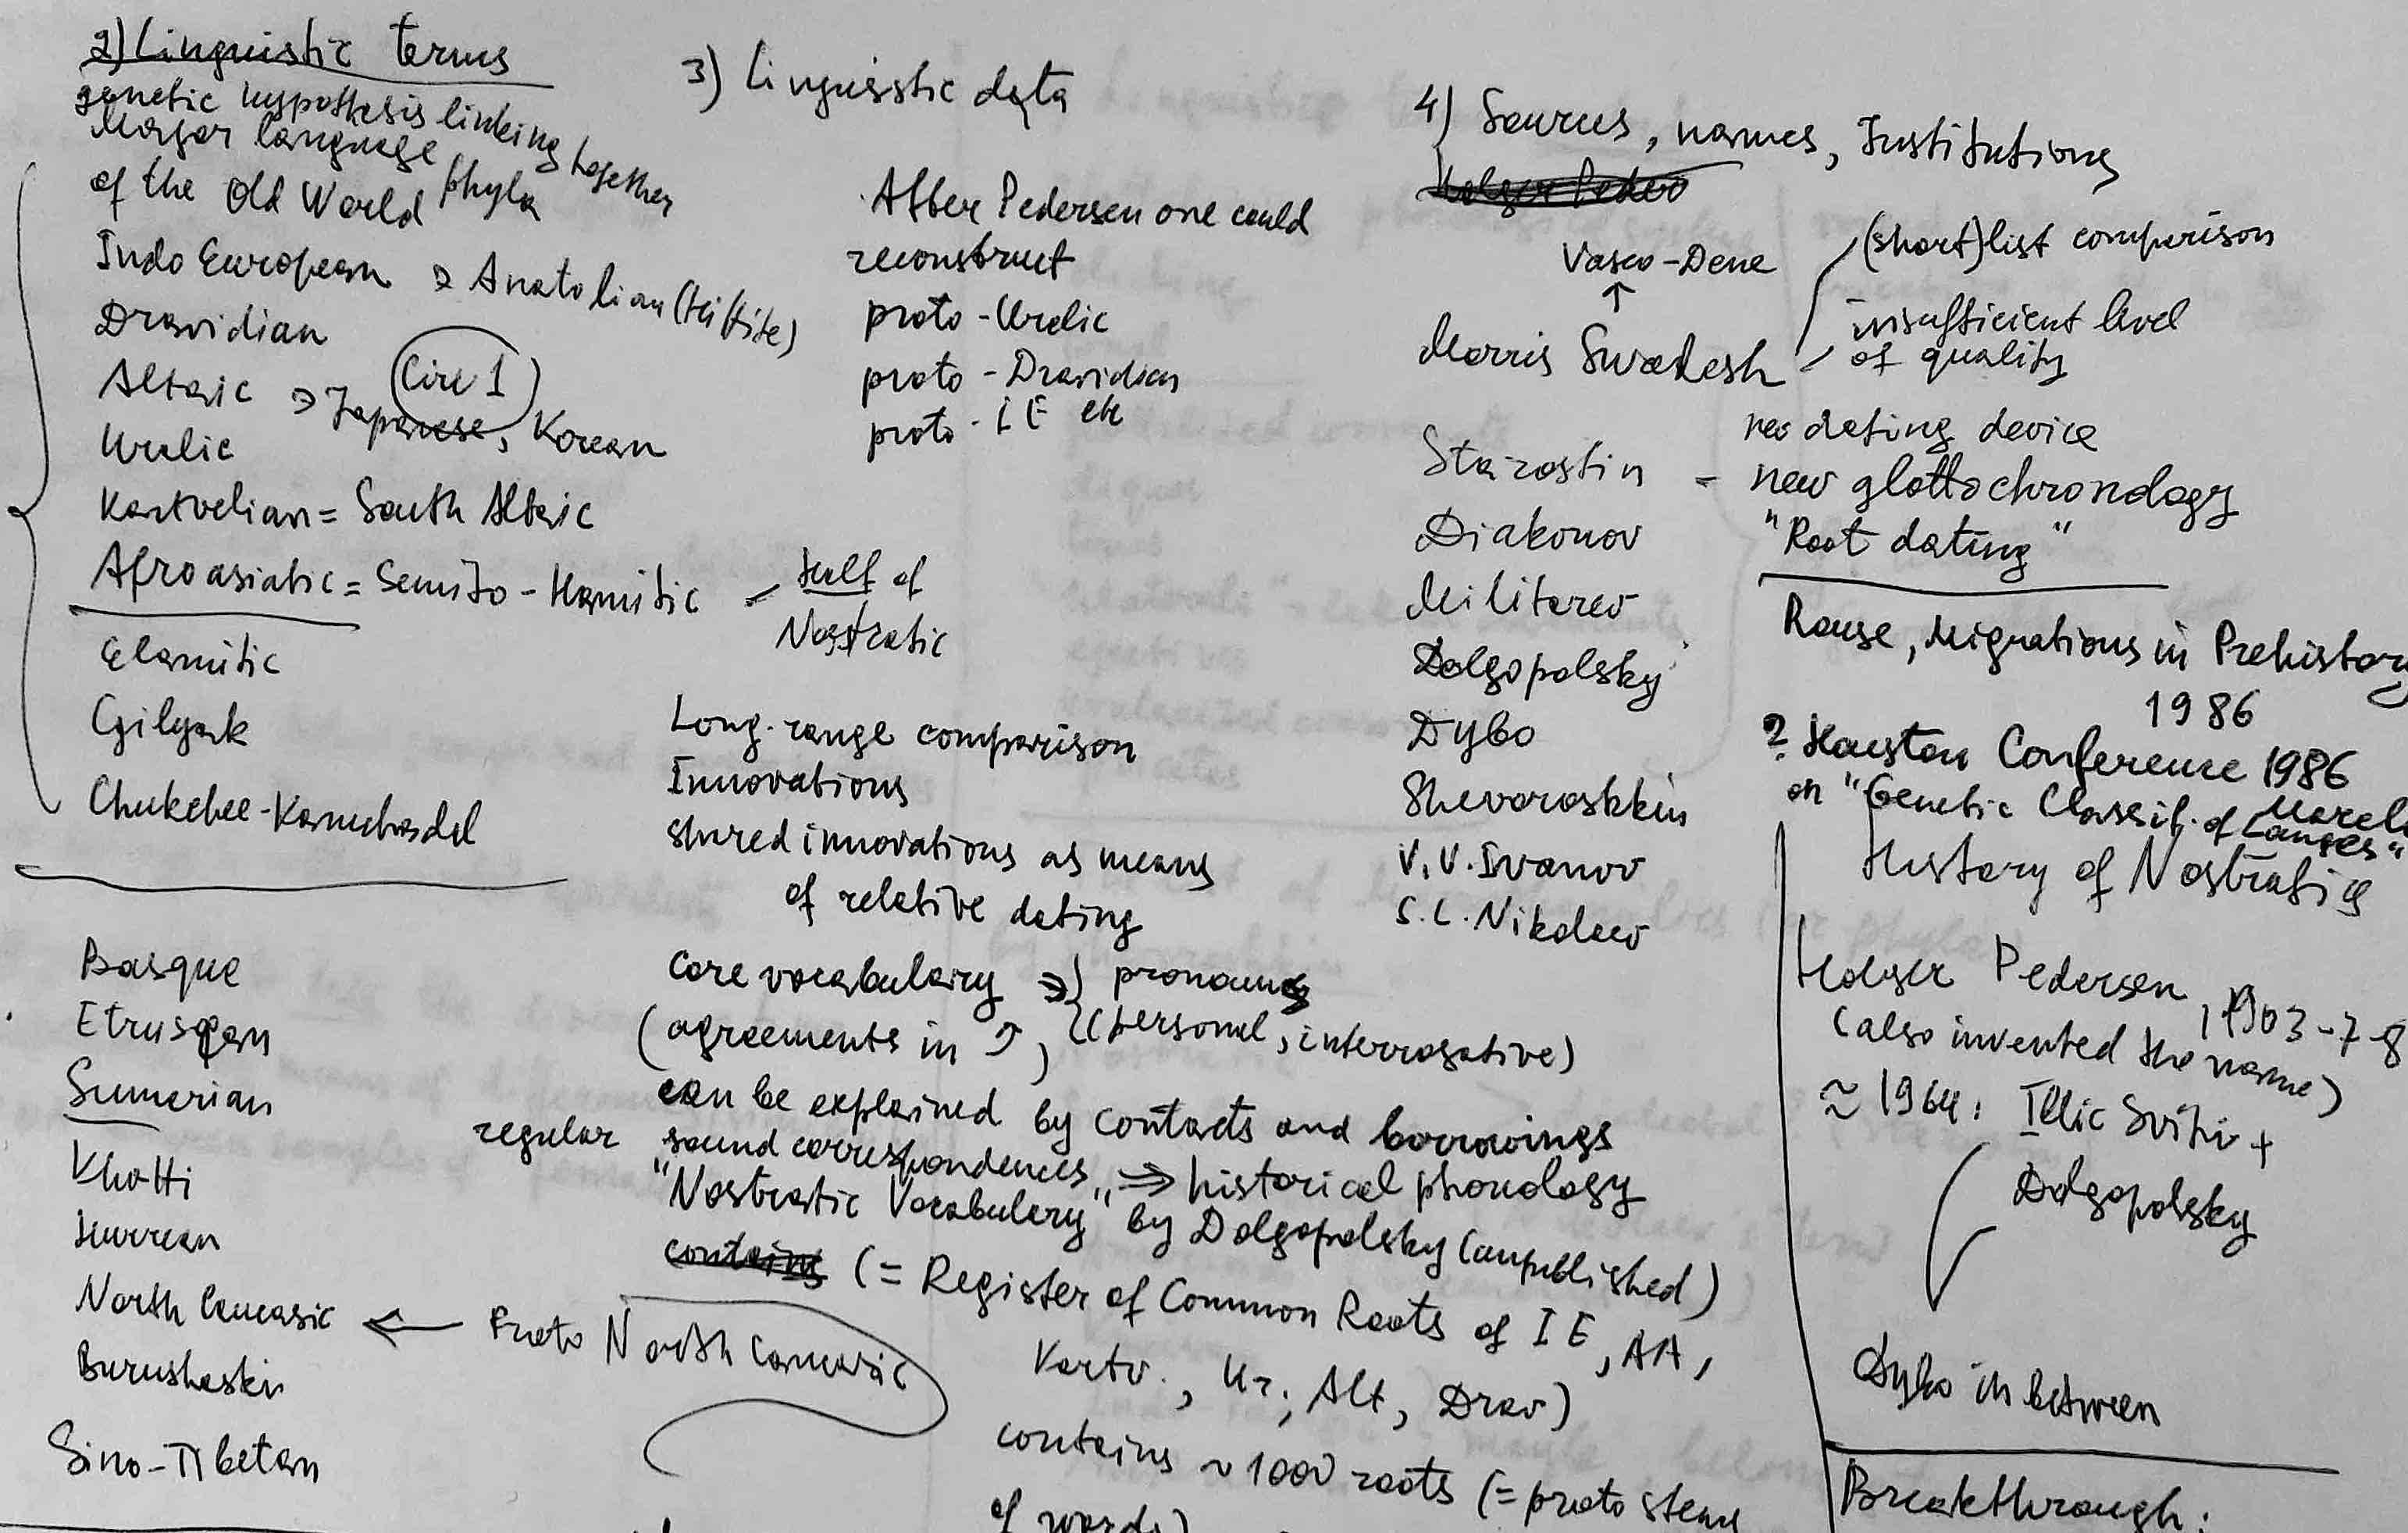 2) Linguistic terms
genetic hypothesis linking together
Major language phyla
of the Old World
Indo European → Anatolian (Hittite)
Dravidian
Altaic → Japanese, Korean
Uralic
Kartvelian = South Altaic
Afroasiatic = Semito-Hamitic - Half of
Nostratic
Elamitic
Gilyak
Chukchee-Kamchadal
Basque
Etruscan
Sumerian
Khatti
Hurrean
North Caucasic ← Proto North Caucasic
Burushaski
Sino-Tibetan
3) Linguistic data
After Pedersen one could
reconstruct
proto-Uralic
proto-Dravidian
proto-IE etc
Long-range comparison
Innovations
shared innovations as means
of relative dating
core vocabulary ⇒ pronouns
(agreements in ↑, (personal, interrogative)
can be explained by contacts and borrowings
regular sound correspondences ⇒ historical phonology
"Nostratic Vocabulary" by Dolgopolsky (unpublished)
contains (= Register of Common Roots of IE, AA,
Kartv., Ur., Alt, Drav)
contains ~ 1000 roots (= proto stems
of words)
4) Sources, names, Institutions
Holger Peders
Vasco-Dene
↑
Morris Swadesh
(short)list comparison
insufficient level
of quality
Starostin - new glottochronology
new dating device
"Root dating"
Diakonov
Militarev
Dolgopolsky
Dybo
Shevoroshkin
V.V. Ivanov
S.L. Nikolaev
Rouse, Migrations in Prehistory
1986
? Houston Conference 1986
on "Genetic Classif. of Langes"
History of Nostratics
Holger Pedersen, 1903-7-8
(also invented the name)
≈ 1964: Illic Svityc +
Dolgopolsky
Dybo in between
Breakthrough: